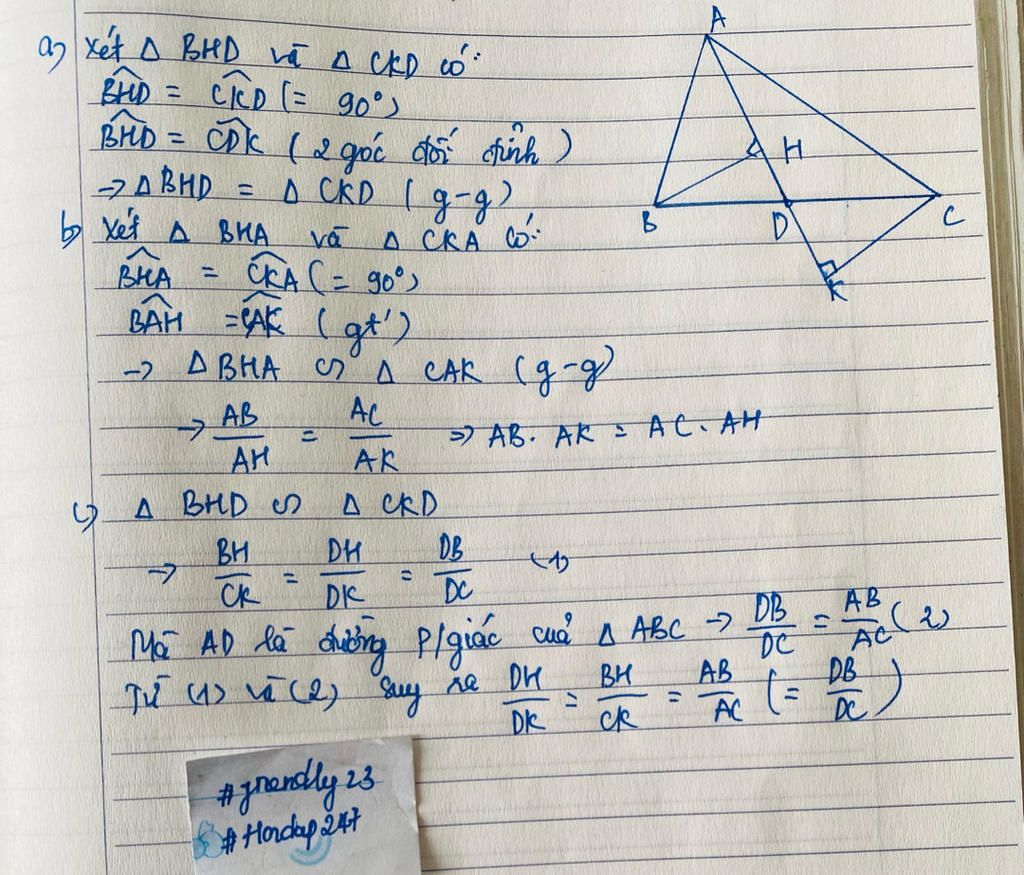 a) Xét △ BHD và △ CKD có:
$\widehat{BHD}$ = $\widehat{CKD}$ (= 90°)
$\widehat{BHD}$ = $\widehat{CDK}$ (2 góc đối đỉnh)
→ △BHD = △ CKD (g-g)
b) Xét △ BHA và △ CKA có:
$\widehat{BHA}$ = $\widehat{CKA}$ (= 90°)
$\widehat{BAH}$ = $\widehat{CAK}$ (gt')
→ △BHA ∽ △ CAK (g-g)
→ $\frac{AB}{AH}$ = $\frac{AC}{AK}$ ⇒ AB. AK = AC. AH
c) △ BHD ∽ △ CKD
→ $\frac{BH}{CK}$ = $\frac{DH}{DK}$ = $\frac{DB}{DC}$ (1)
Mà AD là đường P/giác cuả △ ABC → $\frac{DB}{DC}$ = $\frac{AB}{AC}$ (2)
Từ (1) và (2) suy ra $\frac{DH}{DK}$ = $\frac{BH}{CK}$ = $\frac{AB}{AC}$ (= $\frac{DB}{DC}$)
A
H
B
D
C
K
#friendly23
#Hoidap247